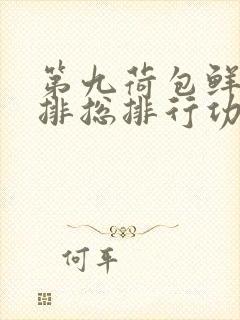 第九荷包鲜
排总排行功
何平